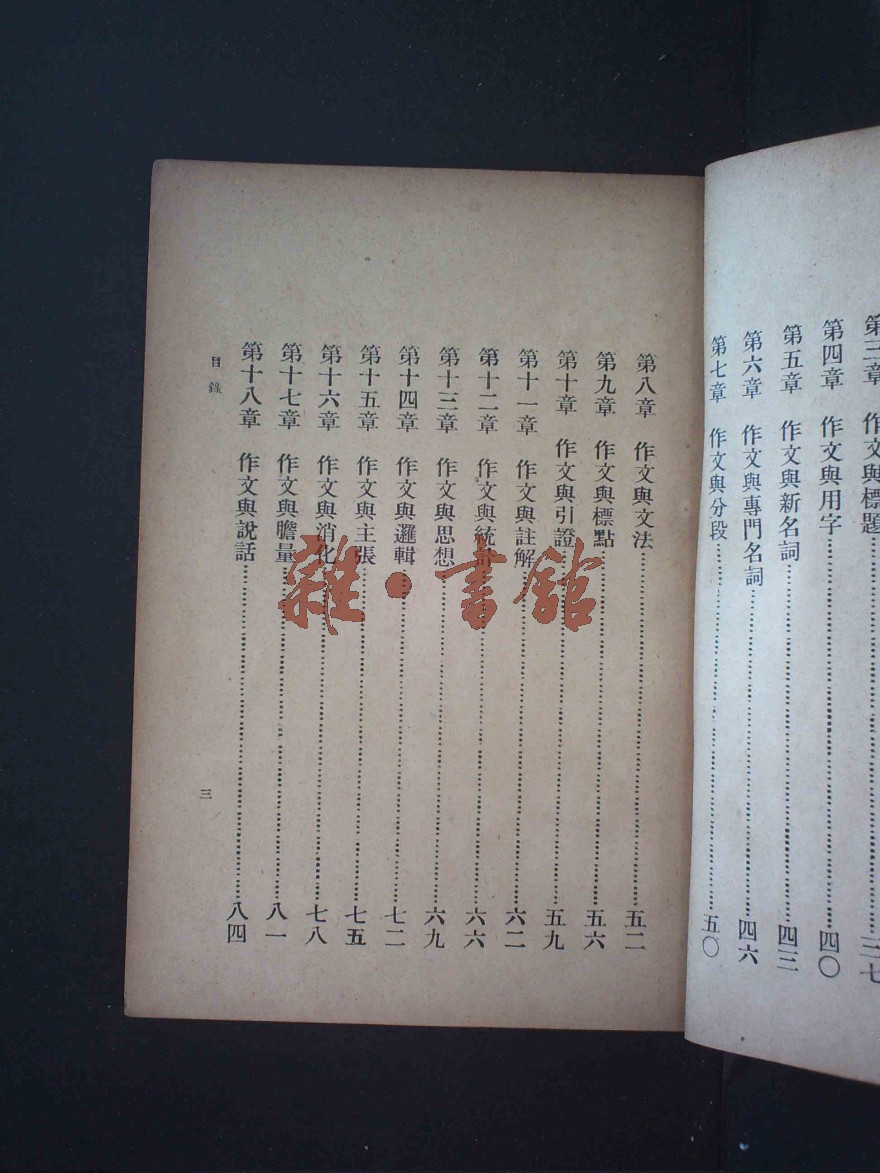 第三章 作文與標題 三七
第四章 作文與用字 四〇
第五章 作文與新名詞 四三
第六章 作文與專門名詞 四六
第七章 作文與分段 五〇
第八章 作文與文法 五二
第九章 作文與標點 五六
第十章 作文與引證 五九
第十一章 作文與註解 六二
第十二章 作文與統計 六六
第十三章 作文與思想 六九
第十四章 作文與邏輯 七二
第十五章 作文與主張 七五
第十六章 作文與消化 七八
第十七章 作文與膽量 八一
第十八章 作文與說話 八四
目錄
三
雜·書館